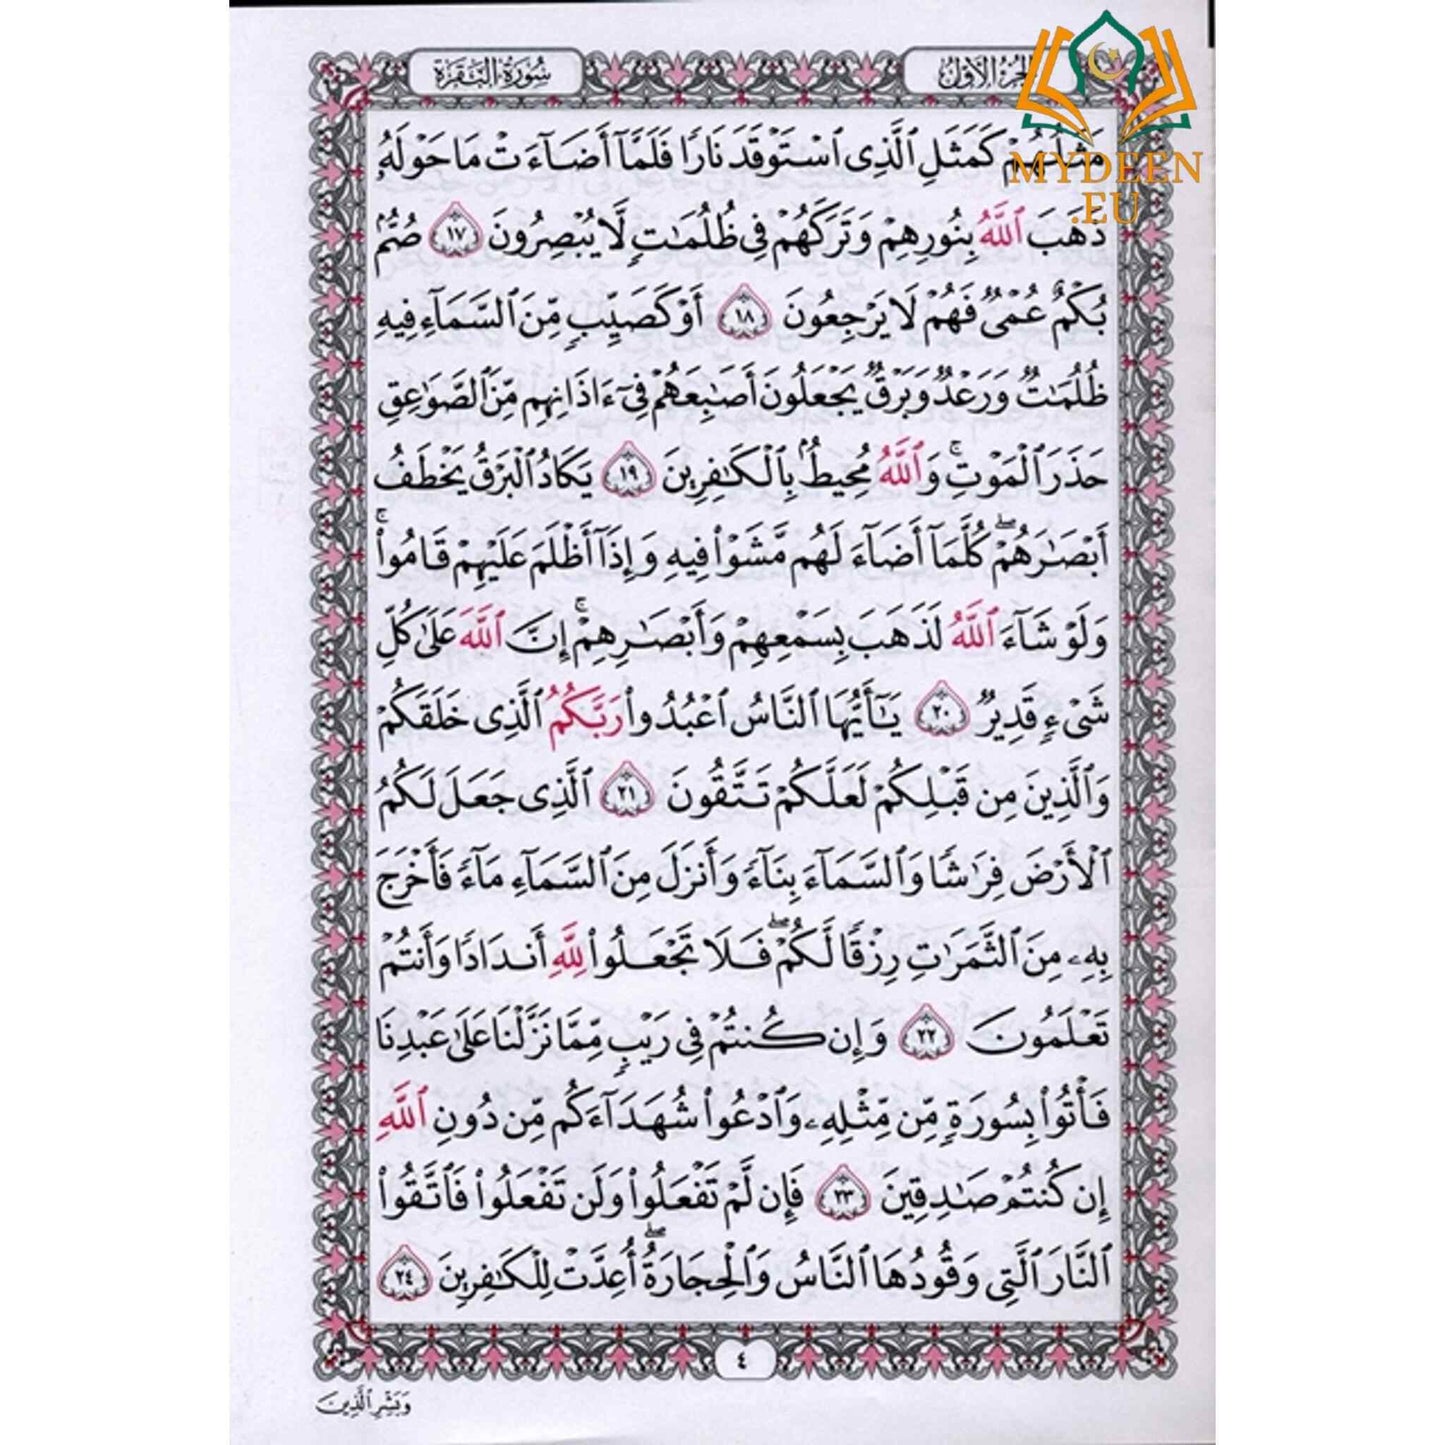 سُورَةُ البَقَرَةِ
الجُزءُ الأوّلُ
MYDEEN
.EU
مَثَلُهُمْ كَمَثَلِ ٱلَّذِى ٱسْتَوْقَدَ نَارًا فَلَمَّآ أَضَآءَتْ مَا حَوْلَهُۥ
ذَهَبَ ٱللَّهُ بِنُورِهِمْ وَتَرَكَهُمْ فِى ظُلُمَٰتٍ لَّا يُبْصِرُونَ ١٧ صُمٌّۢ
بُكْمٌ عُمْىٌ فَهُمْ لَا يَرْجِعُونَ ١٨ أَوْ كَصَيِّبٍ مِّنَ ٱلسَّمَآءِ فِيهِ
ظُلُمَٰتٌ وَرَعْدٌ وَبَرْقٌ يَجْعَلُونَ أَصَٰبِعَهُمْ فِىٓ ءَاذَانِهِم مِّنَ ٱلصَّوَٰعِقِ
حَذَرَ ٱلْمَوْتِ ۚ وَٱللَّهُ مُحِيطٌۢ بِٱلْكَٰفِرِينَ ١٩ يَكَادُ ٱلْبَرْقُ يَخْطَفُ
أَبْصَٰرَهُمْ ۖ كُلَّمَآ أَضَآءَ لَهُم مَّشَوْا۟ فِيهِ وَإِذَآ أَظْلَمَ عَلَيْهِمْ قَامُوا۟ ۚ
وَلَوْ شَآءَ ٱللَّهُ لَذَهَبَ بِسَمْعِهِمْ وَأَبْصَٰرِهِمْ ۚ إِنَّ ٱللَّهَ عَلَىٰ كُلِّ
شَىْءٍ قَدِيرٌ ٢٠ يَٰٓأَيُّهَا ٱلنَّاسُ ٱعْبُدُوا۟ رَبَّكُمُ ٱلَّذِى خَلَقَكُمْ
وَٱلَّذِينَ مِن قَبْلِكُمْ لَعَلَّكُمْ تَتَّقُونَ ٢١ ٱلَّذِى جَعَلَ لَكُمُ
ٱلْأَرْضَ فِرَٰشًا وَٱلسَّمَآءَ بِنَآءً وَأَنزَلَ مِنَ ٱلسَّمَآءِ مَآءً فَأَخْرَجَ
بِهِۦ مِنَ ٱلثَّمَرَٰتِ رِزْقًا لَّكُمْ ۖ فَلَا تَجْعَلُوا۟ لِلَّهِ أَندَادًا وَأَنتُمْ
تَعْلَمُونَ ٢٢ وَإِن كُنتُمْ فِى رَيْبٍ مِّمَّا نَزَّلْنَا عَلَىٰ عَبْدِنَا
فَأْتُوا۟ بِسُورَةٍ مِّن مِّثْلِهِۦ وَٱدْعُوا۟ شُهَدَآءَكُم مِّن دُونِ ٱللَّهِ
إِن كُنتُمْ صَٰدِقِينَ ٢٣ فَإِن لَّمْ تَفْعَلُوا۟ وَلَن تَفْعَلُوا۟ فَٱتَّقُوا۟
ٱلنَّارَ ٱلَّتِى وَقُودُهَا ٱلنَّاسُ وَٱلْحِجَارَةُ ۖ أُعِدَّتْ لِلْكَٰفِرِينَ ٢٤
٤
وَبَشِّرِ ٱلَّذِينَ